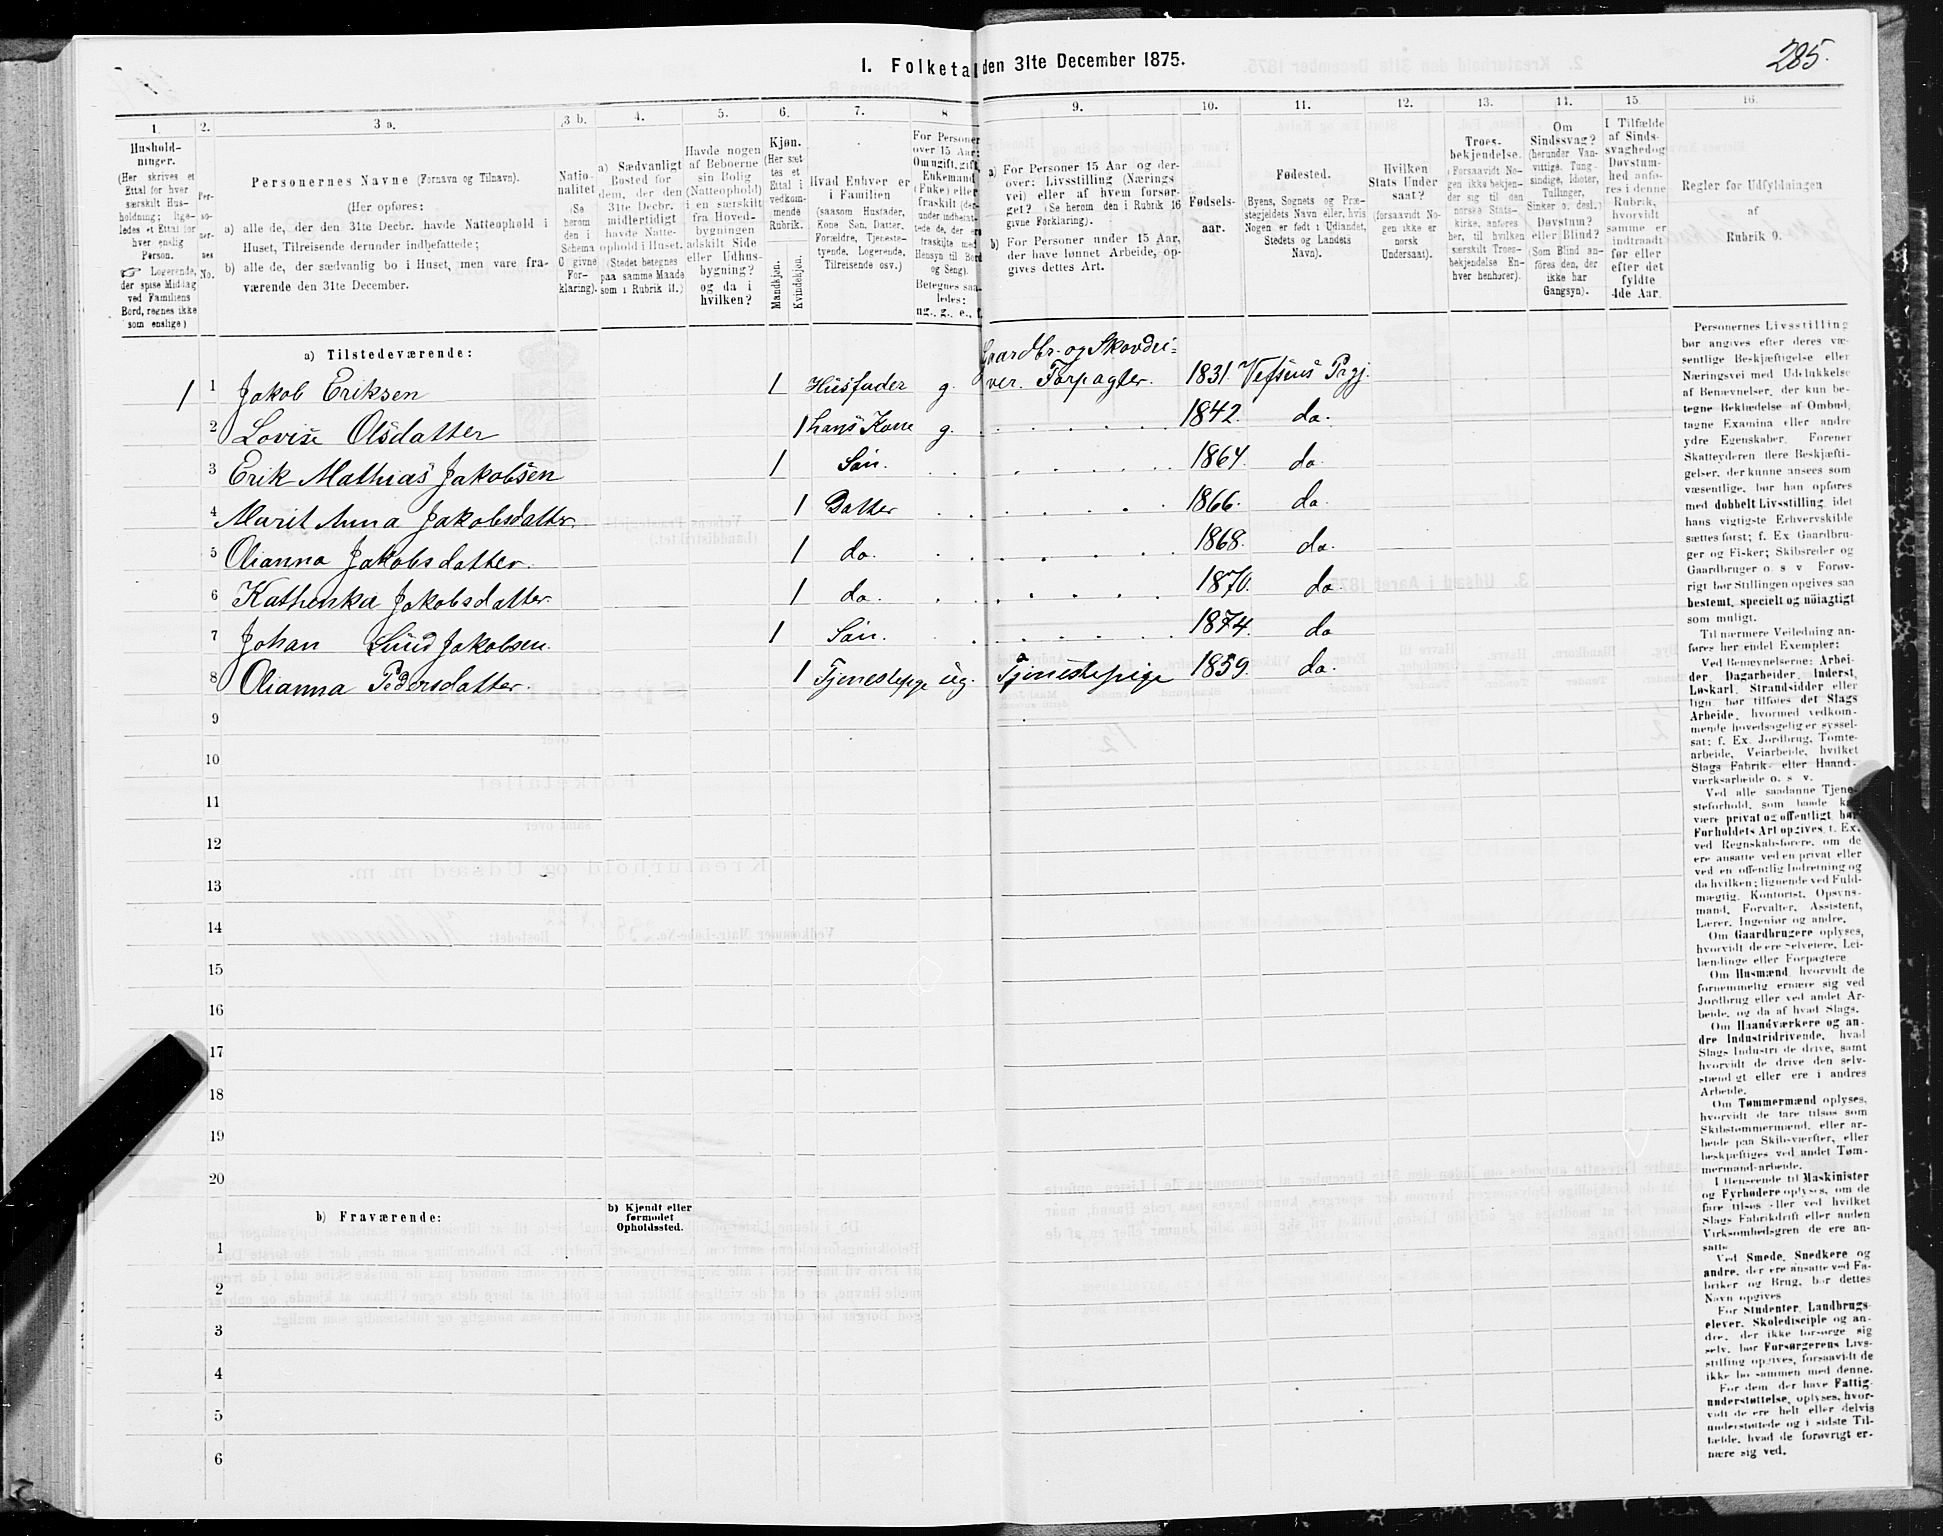 285.
I. Folketal den 31te December 1875.
1. 2. 3 a. 3 b. 4. 5. 6. 7. 8 9. 10. 11. 12. 13. 14. 15. 16.
Hushold-
ninger.
(Her skrives et
Ettal for hver
særskilt Hus-
holdning; lige-
ledes et Ettal for
hver enslig
Person.
Logerende,
der spise Middag
ved Familiens
Bord, regnes ikke
som enslige)
Per-
so-
ner-
nes
No.
Personernes Navne (Fornavn og Tilnavn).
(Her opføres:
a) alle de, der den 31te Decbr. havde Natteophold i
Huset, Tilreisende derunder indbefattede;
b) alle de, der sædvanlig bo i Huset, men vare fra-
værende den 31te December.
Natio-
nalitet
(Se
herom
den i
Schema
G givne
For-
klaring).
a) Sædvanligt
Bosted for
dem, der den
31te Decbr.
midlertidigt
havde Natte-
ophold i Huset.
(Stedet betegnes
paa samme Maade
som i Rubrik 11.)
Havde nogen
af Beboerne
sin Bolig
(Natteophold)
i en særskilt
fra Hoved-
bygningen
adskilt Side
eller Udhus-
bygning?
og da i
hvilken?
Kjøn.
(Her sæt-
tes et
Ettal i
vedkom-
mende
Rubrik.
Mandkjøn.
Kvindekjøn.
Hvad Enhver er
i Familien
(saasom Husfader,
Kone Søn, Datter,
Forældre, Tjeneste-
tyende, Logerende,
Tilreisende osv.)
For Personer
over 15 Aar:
Om ugift, gift,
Enkemand
(Enke) eller
fraskilt (der-
under indbefat-
tede de, der ere
fraskilte med
Hensyn til Bord
og Seng).
Betegnes saa-
ledes:
ug., g., e., f.
a) For Personer 15 Aar og der-
over: Livsstilling (Nærings-
vei) eller af hvem forsør-
get? (Se herom den i Rubrik 16
givne Forklaring).
b) For Personer under 15 Aar,
der have lønnet Arbeide, op-
gives dettes Art.
Fødsels-
aar.
Fødested.
(Byens, Sognets og Præ-
stegjeldets Navn eller, hvis
Nogen er født i Udlandet,
Stedets og Landets
Navn).
Hvilken
Stats Under
saat?
(forsaavidt No-
gen ikke er
norsk
Undersaat).
Troes-
bekjendelse.
(Forsaavidt No-
gen ikke bekjen-
der sig til den
norske Stats-
kirke, anføres
her, til hvilken
særskilt Troes-
bekjendelse En-
hver henhører).
Om
Sindssvag?
(herunder Van-
vittige, Tung-
sindige, Idioter,
Tullinger,
Sinker o. desl.)
Døvstum?
eller Blind?
(Som Blind an-
føres den, der
ikke har
Gangsyn).
I Tilfælde
af Sinds-
svaghed og
Døvstum-
hed anfø-
res i denne
Rubrik,
hvorvidt
samme er
indtraadt
før eller
efter det
fyldte
4de Aar.
Regler for Udfyldningen
af
Rubrik 9.
a) Tilstedeværende:
Gaardbr. og Skovdri-
1 1 Jakob Eriksen 1 Husfader g. ver. Forpagter. 1831. Vefsens Prgj.
2 Lovise Olsdatter 1 hans Kone g. 1842. do.
3 Erik Mathias Jakobsen 1 Søn. 1864. do.
4 Marit Anna Jakobsdatter. 1 Datter 1866. do.
5 Olianna Jakobsdatter. 1 do. 1868. do.
6 Kathinka Jakobsdatter. 1 do. 1870. do.
7 Johan Lund Jakobsen. 1 Søn. 1874. do
8 Olianna Pedersdatter. 1 Tjenestepige ug. Tjenestepige 1859. do.
9
10
11
12
13
14
15
16
17
18
19
20
b) Fraværende:
b) Kjendt eller
formodet
Opholdssted.
1
2
3
4
5
6
Personernes Livsstilling
bør angives efter deres væ-
sentlige Beskjæftigelse eller
Næringsvei med Udelukkelse
af Benævnelser, der kun be-
tegne Beklædelse af Ombud,
tagne Examina eller andre
ydre Egenskaber. Forener
Skatteyderen flere Beskjæfti-
gelser, der kunne ansees som
væsentlige, bør han opføres
med dobbelt Livsstilling, idet
hans vigtigste Erhvervskilde
sættes først; f. Ex Gaardbru-
ger og Fisker; Skibsreder og
Gaardbruger o. s v Forøv-
rigt bør Stillingen opgives saa
bestemt, specielt og nöiagtigt
som muligt.
Til nærmere Veiledning an-
føres her endel Exempler:
Ved Benævnelserne: Arbei-
der, Dagarbeider, Inderst,
Løskarl, Strandsidder eller
lign bør tilføies det Slags
Arbeide, hvormed vedkom-
mende hovedsagelig er syssel-
sat; f. Ex. Jordbrug, Tomte-
arbeide, Veiarbeide, hvilket
Slags Fabrik- eller Haand-
værksarbeide o. s v.
Ved alle saadanne Tjene-
steforhold, som baade kan
være privat og offentligt, bør
Forholdets Art opgives, f. Ex.
ved Regnskabsførere, om de
ere ansatte ved en privat eller
ved en offentlig Indretning og
da hvilken; lignende ved Fuld-
mægtig, Kontorist, Opsyns-
mand, Forvalter, Assistent,
Lærer, Ingeniør og andre.
Om Gaardbrugere oplyses,
hvorvidt de ere Selveiere, Lei-
lændinge eller Forpagtere
Om Husmænd, hvorvidt de
fornemmelig ernære sig ved
Jordbrug eller ved andet Ar-
beide, og da af hvad Slags.
Om Haandværkere og an-
dre Industridrivende, hvad
Slags Industri de drive, samt
hvorvidt de drive den selv-
stændigt eller ere i andres
Arbeide.
Om Tømmermænd oplyses,
hvorvidt de fare tilsøs som
Skibstømmermænd, eller ar-
beide paa Skibsværfter, eller
beskjæftiges ved andet Tøm-
mermandsarbeide.
I Henseende til Maskinister
og Fyrbødere oplyses, om de
fare tilsøs eller ved hvilket
Slags Fabrikdrift eller anden
Virksomhedsgren de ere an-
satte
Ved Smede, Snedkere og
andre, der ere ansatte ved Fa-
briker og Brug, bør dettes
Navn opgives
For Studenter, Landbrugs-
elever, Skoledisciple og an-
dre, der ikke forsørge sig
selv, bør Forsørgerens Livs-
stilling opgives, forsaavidt de
ikke bo sammen med denne.
For dem, der have Fattig-
understøttelse, oplyses, hvor-
vidt de ere helt eller delvis
understøttede og i sidste Til-
fælde, hvad de forøvrigt er-
nære sig ved.